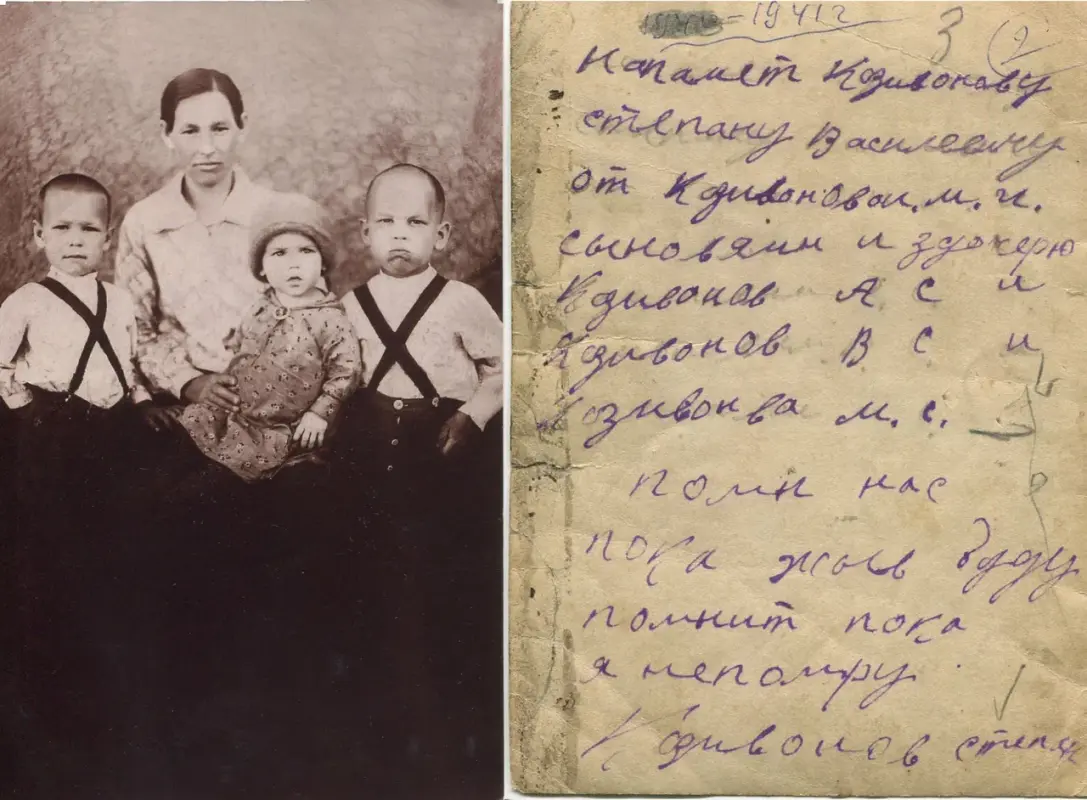 – 1941 г 3 (2
Напамет Кдивонову
степану Василевичу
от Кдивоновои. м. и.
сыновями и здочерю
Кдивонов А С и
Кдивонов В С и
Кдзивонва м. с.
помн нас
пока жыв буду
помнит пока
я непомру.
Кдивонов степан